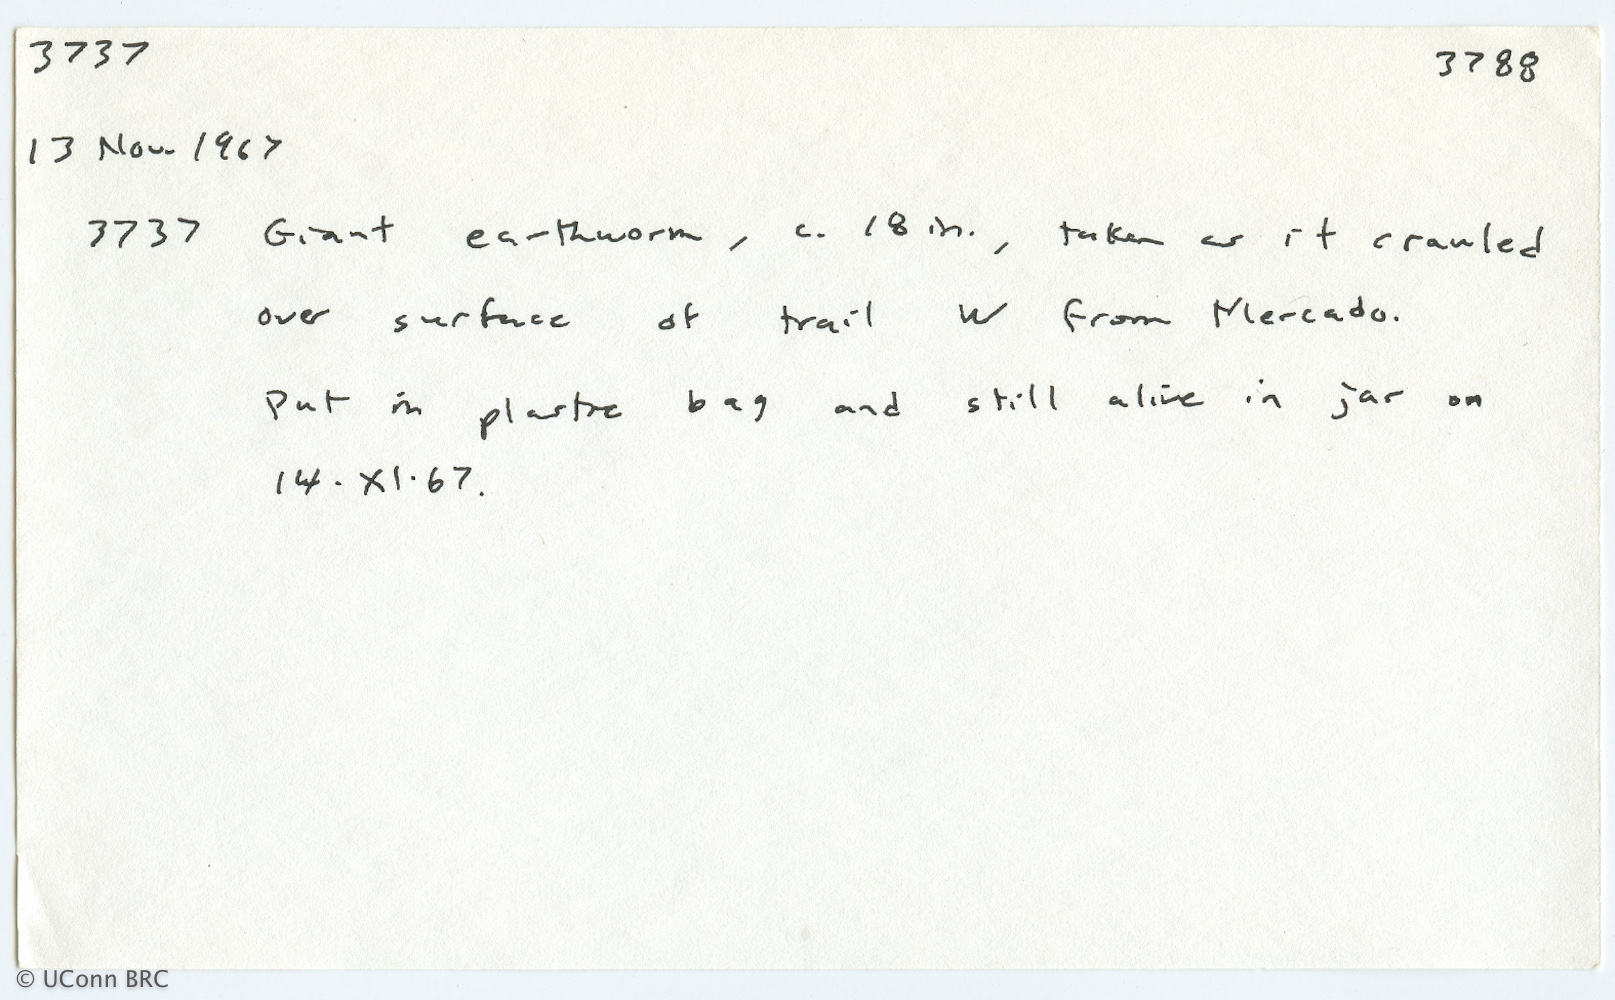 3737 3788
13 Nov. 1967
3737 Giant earthworm, c. 18 in., taken as it crawled
over surface of trail W from Mercado.
Put in plastic bag and still alive in jar on
14.XI.67.
© UConn BRC